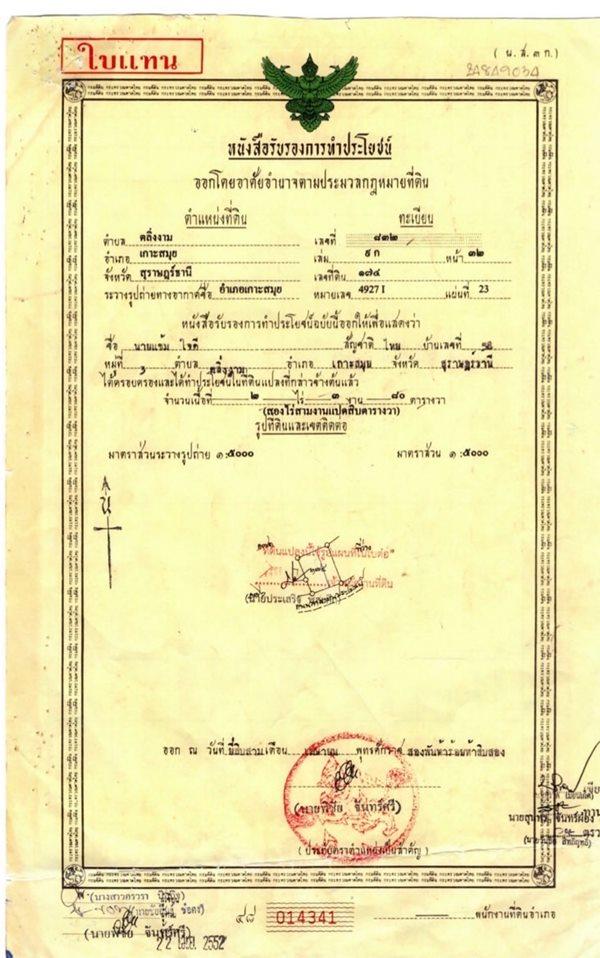 ใบแทน
( น.ส.๓ ก.)
หนังสือรับรองการทำประโยชน์
ออกโดยอาศัยอำนาจตามประมวลกฎหมายที่ดิน
ตำแหน่งที่ดิน ทะเบียน
ตำบล ตลิ่งงาม เลขที่ ๘๓๒
อำเภอ เกาะสมุย เล่ม ๙ ก หน้า ๓๒
จังหวัด สุราษฎร์ธานี เลขที่ดิน ๑๗๔
ระวางรูปถ่ายทางอากาศชื่อ อำเภอเกาะสมุย หมายเลข 4927 I แผ่นที่ 23
หนังสือรับรองการทำประโยชน์ฉบับนี้ออกให้เพื่อแสดงว่า
ชื่อ นายแช้ม ใจดี สัญชาติ ไทย บ้านเลขที่
หมู่ที่ 3 ตำบล ตลิ่งงาม อำเภอ เกาะสมุย จังหวัด สุราษฎร์ธานี
ได้ครอบครองและได้ทำประโยชน์ในที่ดินแปลงที่กล่าวข้างต้นแล้ว
จำนวนเนื้อที่ ๒ ไร่ ๓ งาน ๘๐ ตารางวา
(สองไร่สามงานแปดสิบตารางวา)
รูปที่ดินและเขตติดต่อ
มาตราส่วนระวางรูปถ่าย ๑:๕๐๐๐ มาตราส่วน ๑:๕๐๐๐
น
"ที่ดินแปลงนี้ใช้รูปแผนที่ในใบต่อ"
ออก ณ วันที่ ยี่สิบสาม เดือน เมษายน พุทธศักราช สองพันห้าร้อยห้าสิบสอง
(นายพิชัย จันทร์ศรี)
( ประทับตราตำแหน่งเป็นสำคัญ )
๔๘ 014341 พนักงานที่ดินอำเภอ
(นายพิชัย จันทร์ศรี)
22 เม.ย. 2552